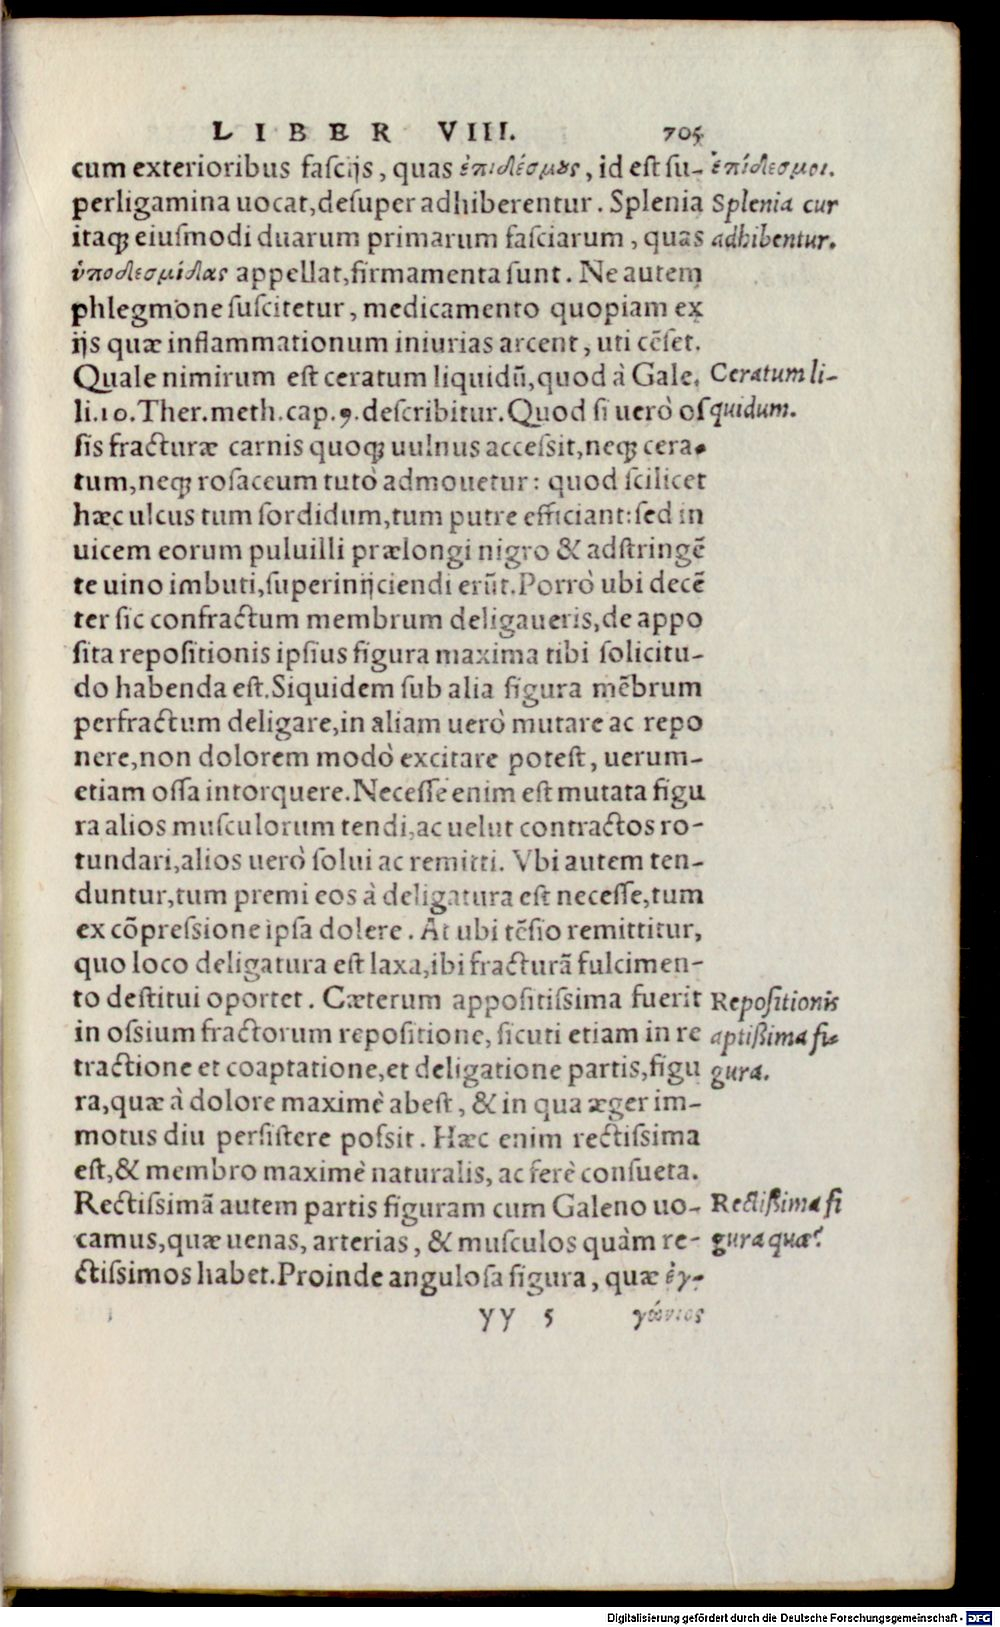 LIBER VIII. 705
cum exterioribus fascijs, quas ἐπιδέσμους, id est su-
perligamina uocat, desuper adhiberentur. Splenia
itaq; eiusmodi duarum primarum fasciarum, quas
ὑποδεσμίδας appellat, firmamenta sunt. Ne autem
phlegmone suscitetur, medicamento quopiam ex
ijs quæ inflammationum iniurias arcent, uti cēset.
Quale nimirum est ceratum liquidū, quod à Gale.
li.10. Ther. meth. cap. 9. describitur. Quod si uerò os
sis fracturæ carnis quoq; uulnus accessit, neq; cera-
tum, neq; rosaceum tutò admouetur: quod scilicet
hæc ulcus tum sordidum, tum putre efficiant: sed in
uicem eorum puluilli prælongi nigro & adstringē
te uino imbuti, superinijciendi erūt. Porrò ubi decē
ter sic confractum membrum deligaueris, de appo
sita repositionis ipsius figura maxima tibi solicitu-
do habenda est. Siquidem sub alia figura mēbrum
perfractum deligare, in aliam uerò mutare ac repo
nere, non dolorem modò excitare potest, uerum-
etiam ossa intorquere. Necesse enim est mutata figu
ra alios musculorum tendi, ac uelut contractos ro-
tundari, alios uerò solui ac remitti. Vbi autem ten-
duntur, tum premi eos à deligatura est necesse, tum
ex cōpressione ipsa dolere. At ubi tēsio remittitur,
quo loco deligatura est laxa, ibi fracturā fulcimen-
to destitui oportet. Cæterum appositissima fuerit
in ossium fractorum repositione, sicuti etiam in re
tractione et coaptatione, et deligatione partis, figu
ra, quæ à dolore maximè abest, & in qua æger im-
motus diu persistere possit. Hæc enim rectissima
est, & membro maximè naturalis, ac ferè consueta.
Rectissimā autem partis figuram cum Galeno uo-
camus, quæ uenas, arterias, & musculos quàm re-
ctissimos habet. Proinde angulosa figura, quæ ἐγ-
yy 5 γώνιος
ἐπίδεσμοι.
Splenia cur
adhibentur.
Ceratum li-
quidum.
Repositionis
aptißima fi-
gura.
Rectißima fi
gura quæ?
Digitalisierung gefördert durch die Deutsche Forschungsgemeinschaft - DFG